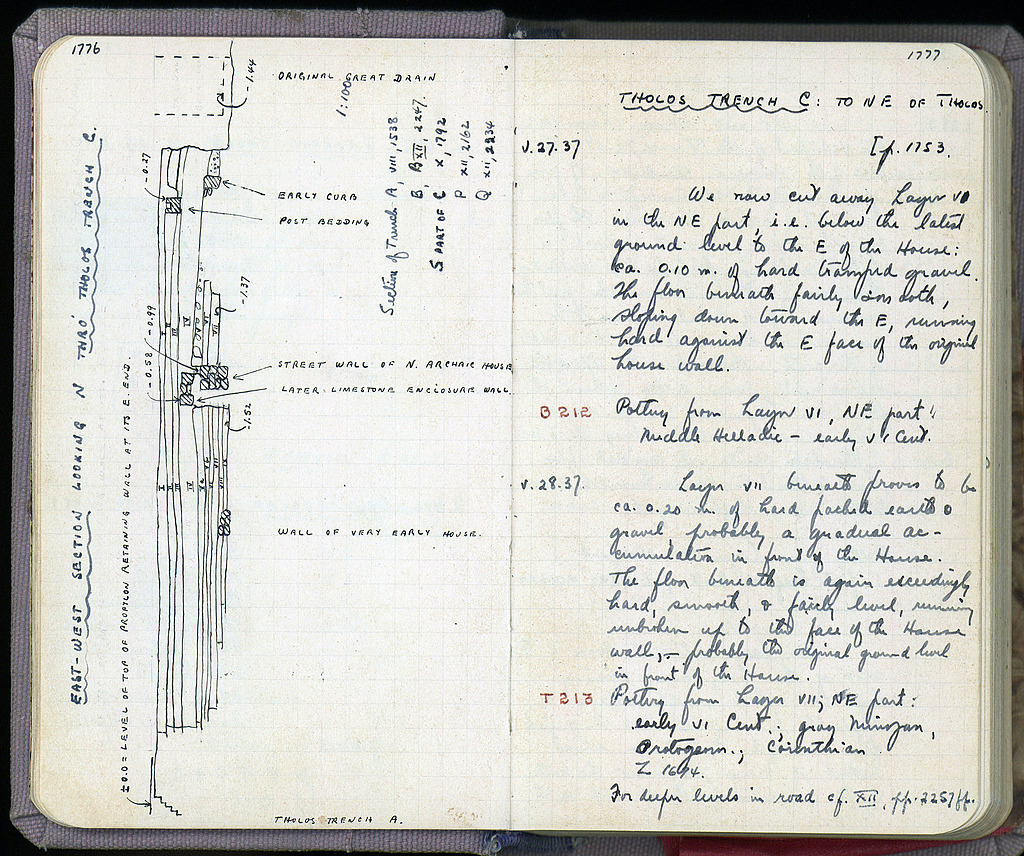 1776
ORIGINAL GREAT DRAIN
1:100
-1.44
-0.27
EARLY CURB
POST BEDDING
Section of Trench A, VIII, 1338
B, BXII, 2247.
S PART OF C X, 1792
P XII, 2162
Q XII, 2234
-1.37
-0.99
-0.58
STREET WALL OF N. ARCHAIC HOUSE
LATER LIMESTONE ENCLOSURE WALL
-1.52
WALL OF VERY EARLY HOUSE.
EAST-WEST SECTION LOOKING N THRO' THOLOS TRENCH C.
±0.0 = LEVEL OF TOP OF PROPYLON RETAINING WALL AT ITS E. END.
THOLOS TRENCH A.
1777
THOLOS TRENCH C: TO NE OF THOLOS
V.27.37
[p. 1753.
We now cut away Layer VI
in the NE part, i.e. below the latest
ground level to the E of the House:
ca. 0.10 m. of hard tramped gravel.
The floor beneath fairly smooth,
sloping down toward the E, running
hard against the E face of the original
house wall.
B 212 Pottery from Layer VI, NE part:
Middle Helladic - early VI Cent.
V.28.37. Layer VII beneath proves to be
ca. 0.20 m. of hard packed earth &
gravel, probably a gradual ac-
cumulation in front of the House.
The floor beneath is again exceedingly
hard, smooth, & fairly level, running
unbroken up to the face of the House
wall, - probably the original ground level
in front of the House.
T 213 Pottery from Layer VII, NE part:
early VI Cent.; gray Minyan,
Protogeom.; Corinthian
L 1694.
For deeper levels in road cf. XII, pp. 2257 ff.